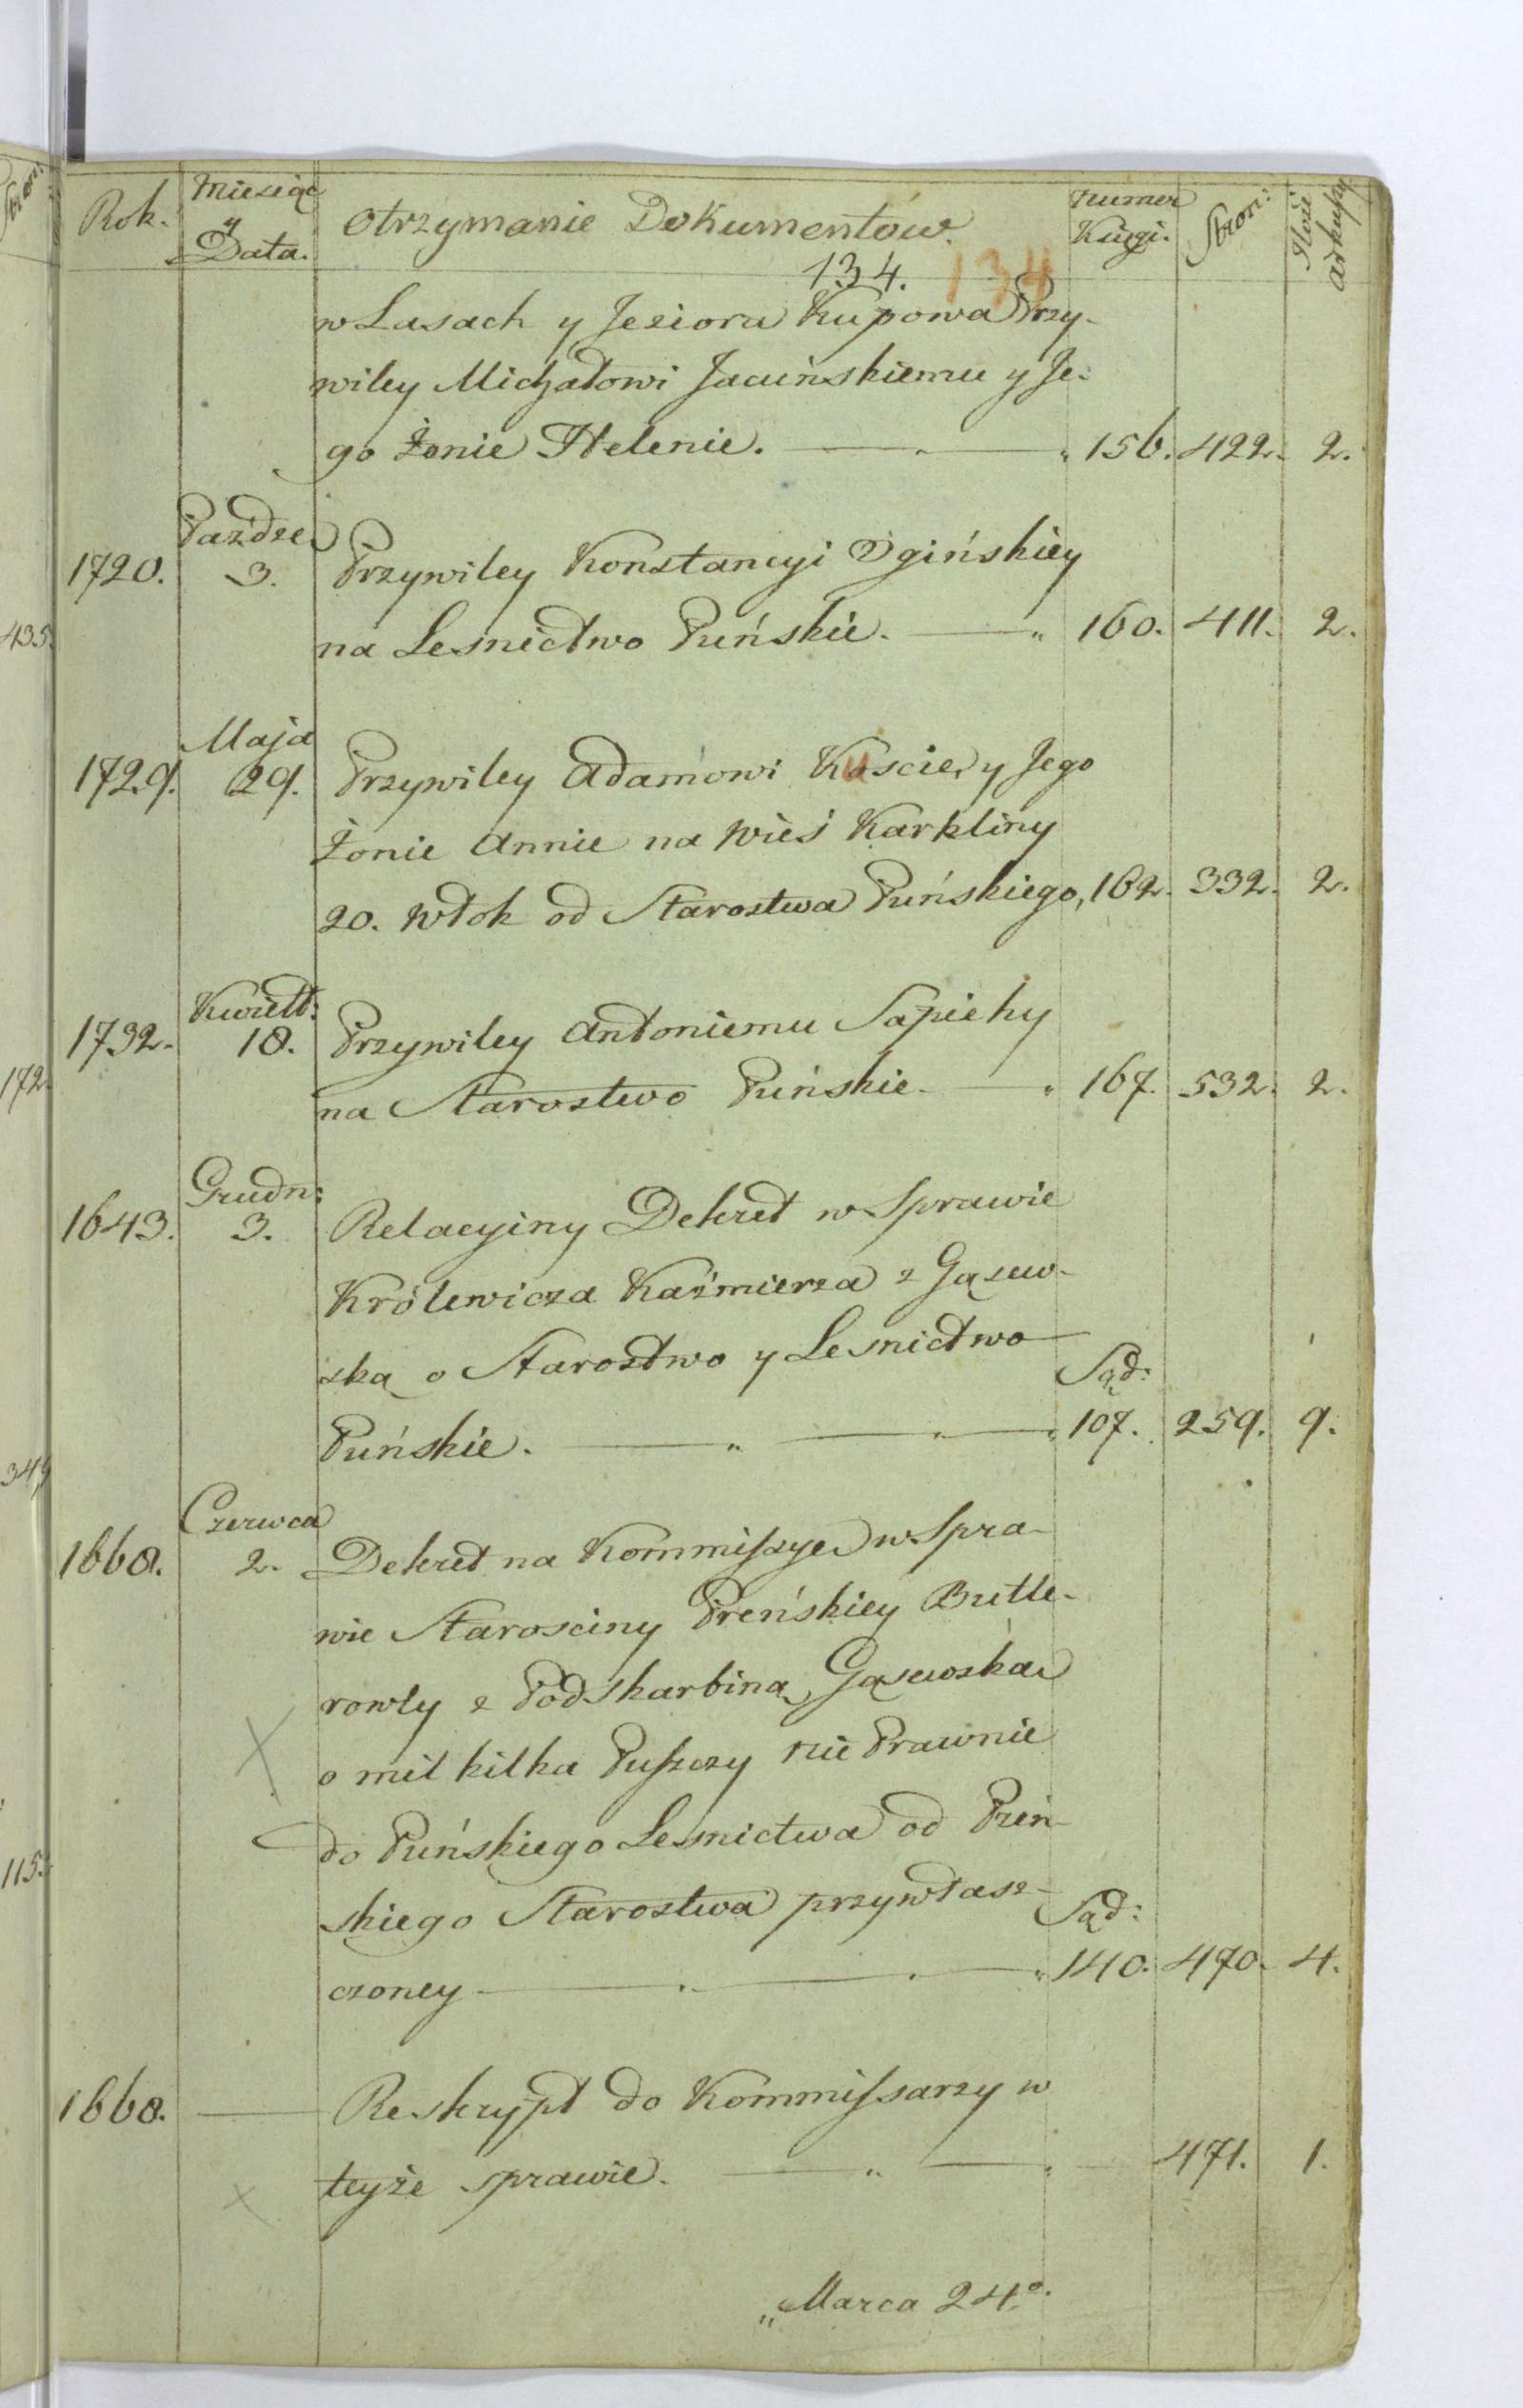 Rok. Miesiąc y Data. Otrzymanie Dokumentów. Numer Księgi. Stron: Ilość arkuszy
134. 134
w Lasach y Jeziora Kupowa Przy-
wiley Michałowi Jacuńskiemu y Je-
go Żonie Helenie. 156. 422. 2.
Paźdze
1720. 3. Przywiley Konstancyi Ogińskiey
na Lesnictwo Puńskie. 160. 411. 2.
Maja
1729. 29. Przywiley Adamowi Kuscie y Jego
Żonie Annie na Wieś Karkliny
20. Włok od Starostwa Puńskiego, 162. 332. 2.
Kwiett:
1732. 18. Przywiley Antoniemu Sapiehy
na Starostwo Puńskie. 167. 532. 2.
Grudn:
1643. 3. Relacyiny Dekret w Sprawie
Królewicza Kaźmierza z Gąsew-
ską o Starostwo y Lesnictwo Sąd:
Puńskie. 107. 259. 9.
Czerwca
1668. 2. Dekret na Kommiszye w Spra-
wie Starosciny Preńskiey Butle-
rowly z Podskarbiną Gąsewską
o mil kilka Puszczy nie Prawnie
do Puńskiego Lesnictwa od Pren-
skiego Starostwa przywłasz- Sąd:
czoney 140. 470. 4.
1668. Reskrypt do Kommissarzy w
teyże sprawie. 471. 1.
„Marca 24°.
435.
172.
349
115.
Stron: